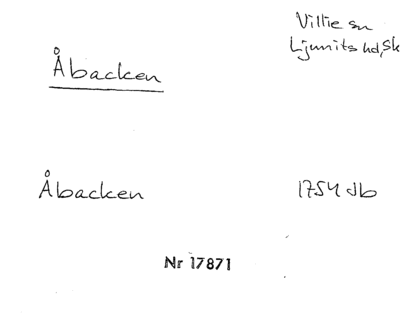 Villie sn
Ljunits hd, Sk
Åbacken
Åbacken 1754 db
Nr 17871